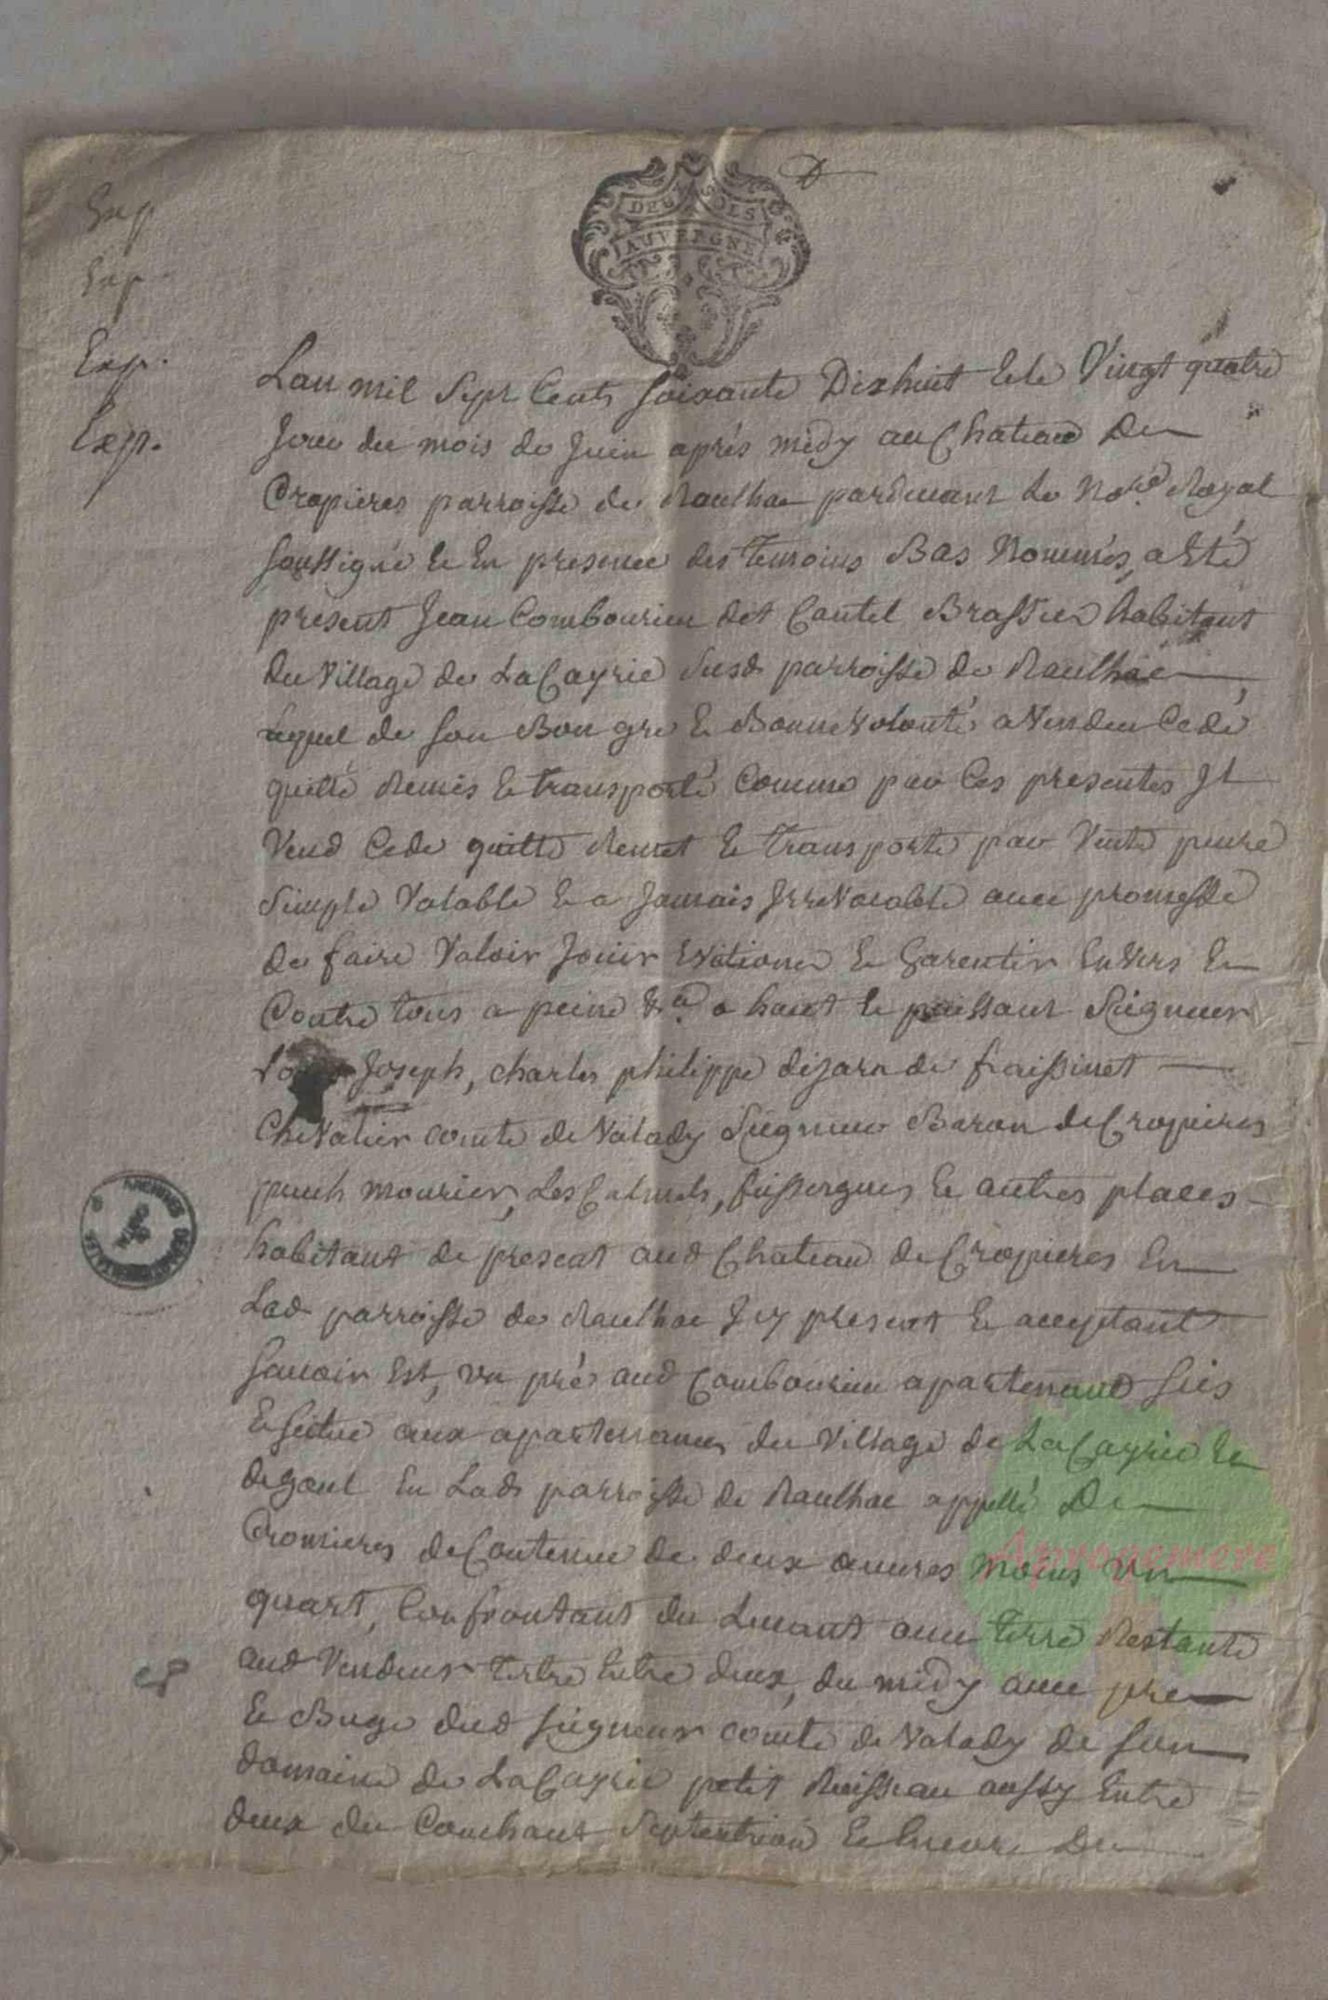 DEUX SOLS
AUVERGNE
Exp
Exp
Exp.
Exp.
Lan mil Sept Cents soixante Dixhuit Et le Vingt quatre
Jour du mois de Juin aprés midy au Chateau De
Cropieres parroisse de Raulhac pardevant Le No.re Royal
soussigné Et En presence des temoins Bas Nommés, a Eté
present Jean Combourieu dit Cantel Brassier habitant
du Village de LaCayrie Susd parroisse de Raulhac
Lequel de son Bon gré & Bonne Volonté a Vendeu Cedé
quitté Remis & transporté Comme par Ces presentes Il
Vend Cede quitte Remet & transporte par Vente pure
Simple Valable & a Jamais Irrevocable avec promesse
de faire Valoir Jouir Evitioner & Garentir Envers &
Contre tous a peine &.a a haut & puissant Seigneur
Joseph, charles philippe dizarn de fraissinet
Chevalier comte de Valady Seigneur Baron de Cropieres
puech mourier, Les fussergues & autres places
habitant de present aud Chateau de Cropieres En
Lad parroisse de Raulhac Icy present & acceptant
Savoir Est, un pré aud Combourieu apartenant sis
& situe aux apartenances du Village de LaCayrie &
degoul En Lad parroisse de Raulhac appellé De
Cromieres de Contenue de deux œuvres moins Un
quart, Confrontant du Levant avec terre Restante
aud Vendeur tertre Entre deux, du midy avec pre
& Buge dud seigneur comte de Valady de son
domaine de LaCayrie petit Ruisseau aussy Entre
deux du Couchant Septentrion & Encore Du
ARCHIVES DEPARTEMENTALES
Aprogemere